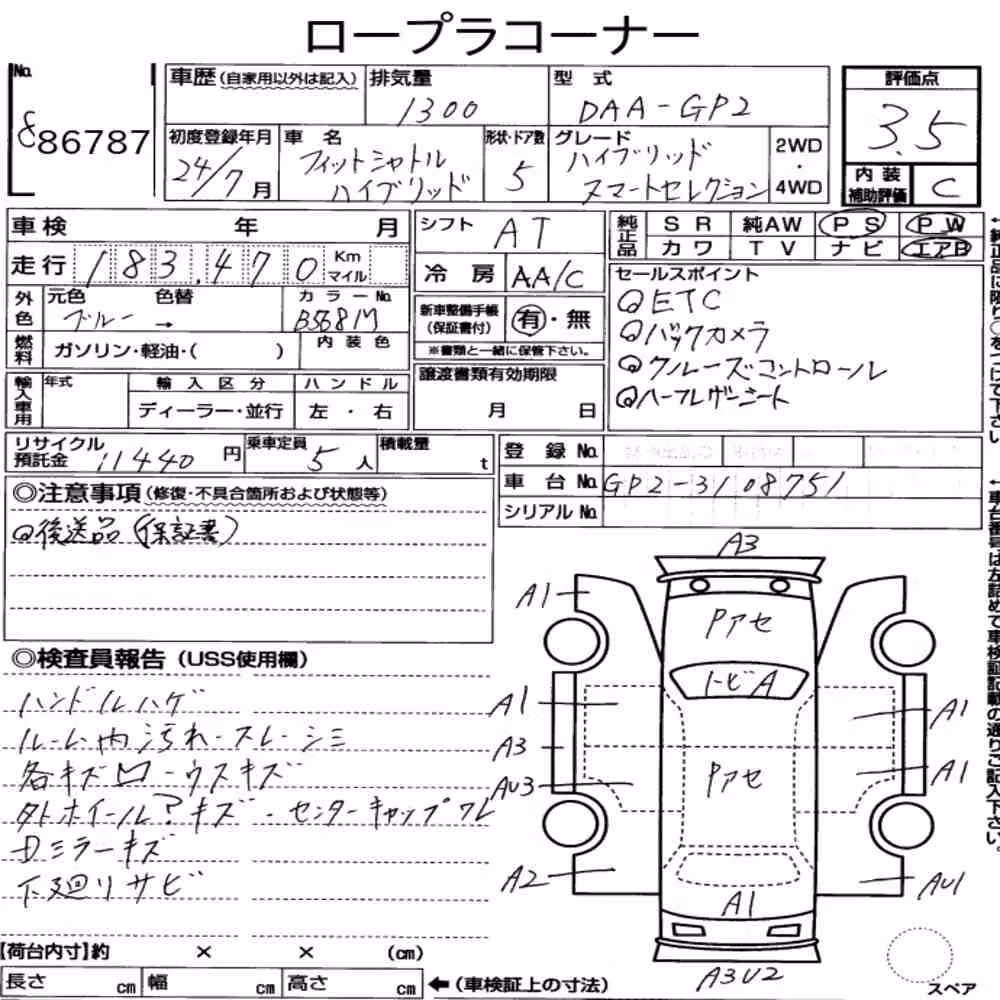 ロープラコーナー
No.
86787
車歴(自家用以外は記入)
排気量
1300
型 式
DAA-GP2
評価点
3.5
初度登録年月
24/7月
車 名
フィットシャトル
ハイブリッド
形状・ドア数
5
グレード
ハイブリッド
スマートセレクション
2WD
・
4WD
内 装
補助評価
C
車検 年 月
シフト
AT
純正品
SR 純AW PS PW
カワ TV ナビ エアB
走行 183,470 Km
マイル
冷 房 AA/C
外色
元色 色替
ブルー →
カラーNo.
B568M
新車整備手帳
(保証書付)
有・無
※書類と一緒に保管下さい。
セールスポイント
ETC
バックカメラ
クルーズコントロール
ハーフレザーシート
燃料
ガソリン・軽油・( )
内 装 色
譲渡書類有効期限
月 日
輸入車用
年式
輸 入 区 分
ハ ン ド ル
ディーラー・並行
左 ・ 右
リサイクル
預託金 11440 円
乗車定員 5 人
積載量 t
登 録 No.
車 台 No. GP2-3108751
シリアル No.
◎注意事項(修復・不具合箇所および状態等)
後送品(保証書)
◎検査員報告(USS使用欄)
ハンドルハゲ
ルーム内汚れ・スレ・シミ
各キズ凹・ウスキズ
外ホイール?キズ・センターキャップワレ
Dミラーキズ
下廻りサビ
A3
A1
Pアセ
トビA
A1
A1
A3
Pアセ
A1
AU3
A2
A1
AU1
A3U2
スペア
【荷台内寸】約 × × (cm)
長さ cm 幅 cm 高さ cm
←(車検証上の寸法)
←純正品に限り○をつけて下さい
←車台番号は左詰めで車検証記載の通りご記入下さい。